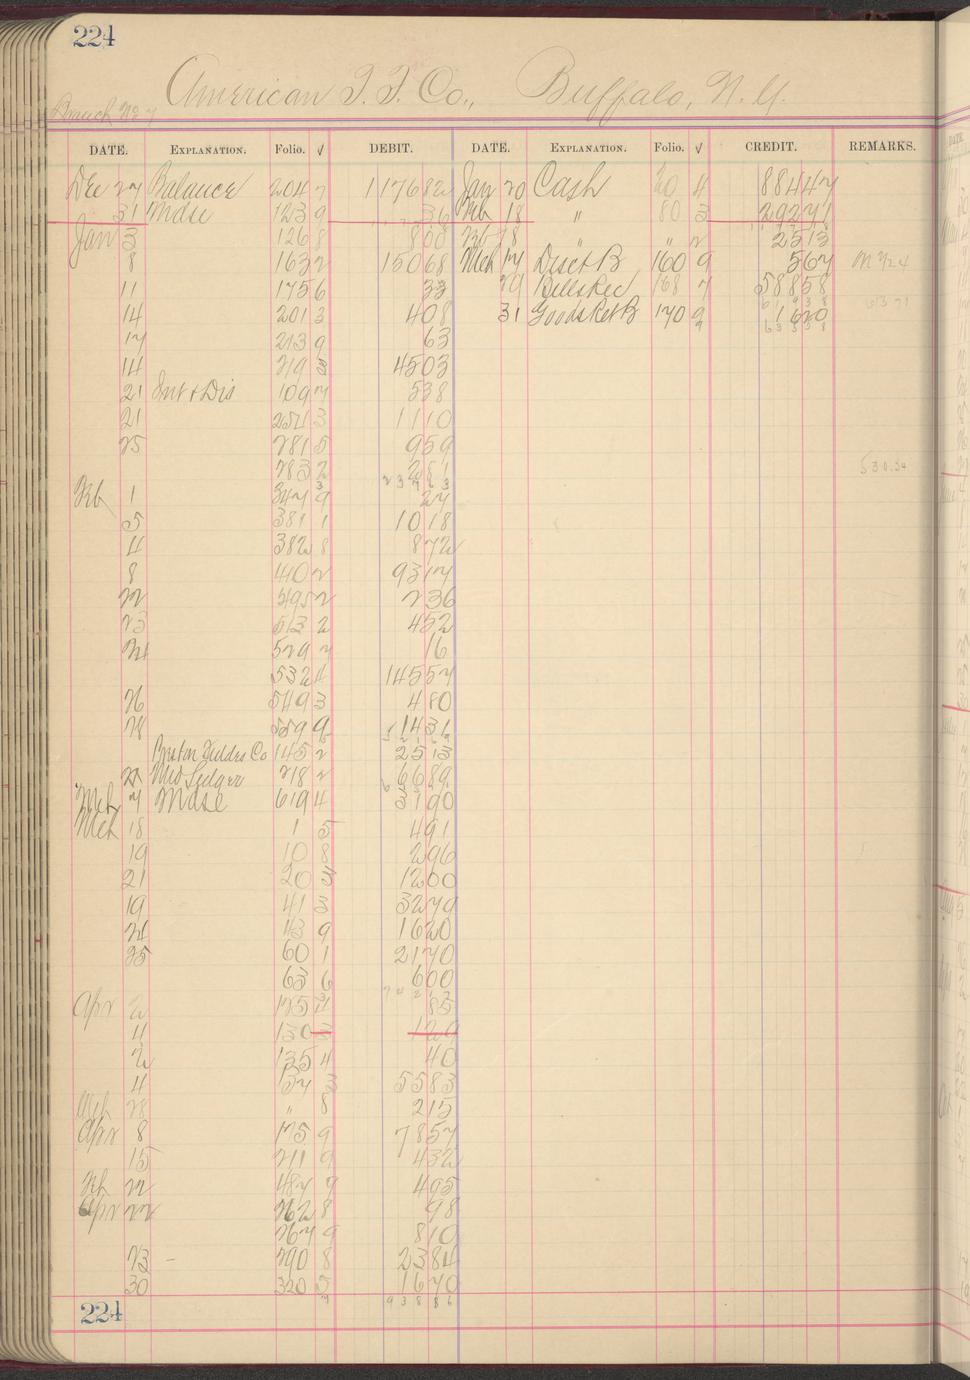 224
American T. T. Co., Buffalo, N. Y.
Branch No 7
DATE. EXPLANATION. Folio. √ DEBIT. DATE. EXPLANATION. Folio. √ CREDIT. REMARKS.
Dec 27 Balance 204 7 117682 Jan 20 Cash 20 4 88447
31 Mdse 123 9 36 Feb 18 " 80 3 29271
Jan 3 126 8 808 18 " 2 2513
8 163 2 15068 Mch 17 Disct B 160 9 567
11 175 6 33 29 Bills Rec 168 7 58858
14 201 3 408 31 Goods Ret B 170 9 1620
17 213 9 63
14 219 3 4503
21 Int & Dis 109 7 538
21 254 3 1110
25 281 5 959
283 2 281
23763
Feb 1 347 9 27
5 381 1 1018
4 382 8 872
8 440 2 9317
22 495 2 236
23 513 2 452
24 529 7 16
532 4 14557
26 549 3 480
28 559 9 1436
145 2 2513
Ledger 218 2 6689
Mch 7 Mdse 619 4 3190
Mch 18 1 5 491
19 10 8 296
21 20 3 1200
19 41 3 3279
24 43 9 1620
25 60 1 2170
63 6 600
Apr 2 125 85
4 130 3 120
2 135 4 40
4 157 3 5583
Mch 28 " 8 215
Apr 8 175 9 7857
15 211 9 432
Feb 22 487 7 495
Apr 22 262 8 98
267 9 810
23 290 8 2384
30 320 5 1670
93886
224